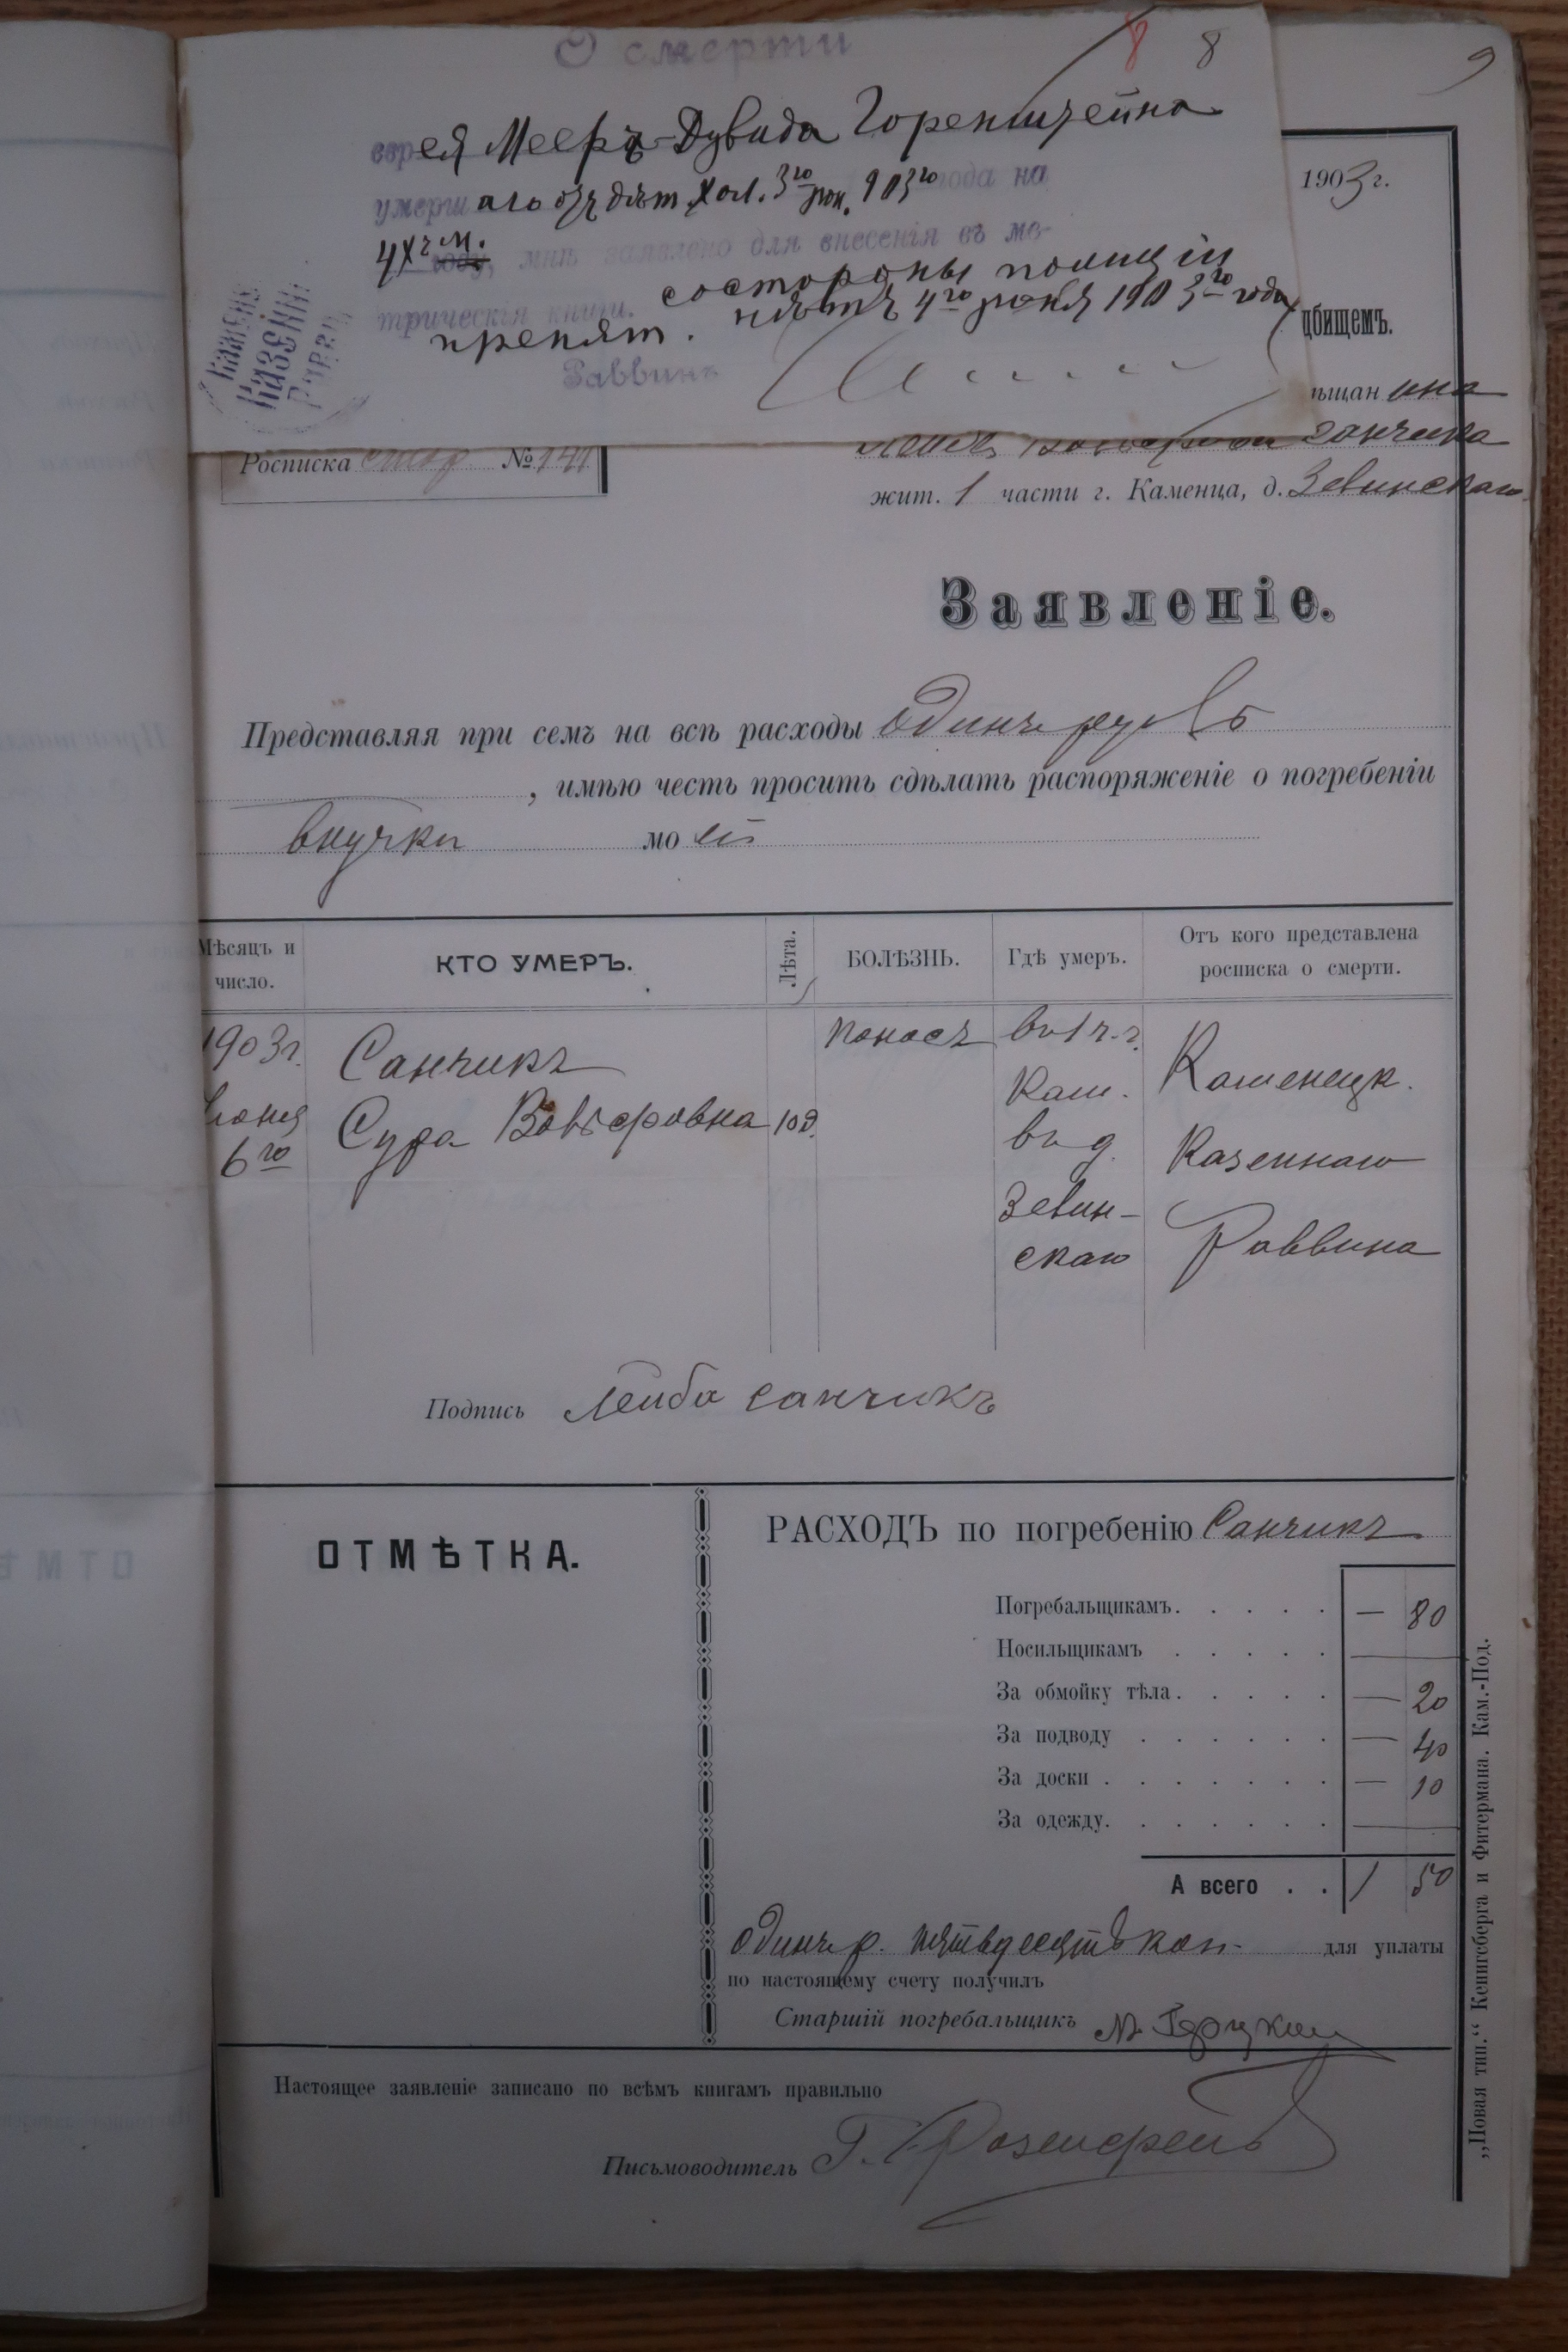 О смерти
8 8
9
еврея Меера-Дувида Горенштейна
умершаго отъ дѣт. хол. 3го іюн. 903го года на
4хъ м. году, мнѣ заявлено для внесенія въ ме-
трическія книги. со стороны полиціи
препят. нѣтъ 4го іюня 1903го года
Раввинъ
Казенн
Равв
1903 г.
дбищемъ.
ѣщанина
Санчика
Росписка № 141
жит. 1 части г. Каменца, д. Зевинскаго
Заявленіе.
Представляя при семъ на всѣ расходы одинъ рубль
, имѣю честь просить сдѣлать распоряженіе о погребеніи
внучки моей
Мѣсяцъ и число.
КТО УМЕРЪ.
Лѣта.
БОЛѢЗНЬ.
Гдѣ умеръ.
Отъ кого представлена росписка о смерти.
1903г.
Іюня
6го
Санчикъ
Сура Вольфовна
10д.
поносъ
въ 1 ч. г.
Кам.
въ д.
Зевин-
скаго
Каменецк.
Казеннаго
Раввина
Подпись Лейба Санчикъ
ОТМѢТКА.
РАСХОДЪ по погребенію Санчикъ
Погребальщикамъ. . . . . — 80
Носильщикамъ . . . . . —
За обмойку тѣла. . . . . — 20
За подводу . . . . . . — 40
За доски . . . . . . . — 10
За одежду. . . . . . . —
А всего . . 1 50
Одинъ р. пятьдесятъ коп. для уплаты
по настоящему счету получилъ
Старшій погребальщикъ М.
Настоящее заявленіе записано по всѣмъ книгамъ правильно
Письмоводитель Г. Розенфельд
„Новая тип.“ Кенигсберга и Фитермана. Кам.-Под.